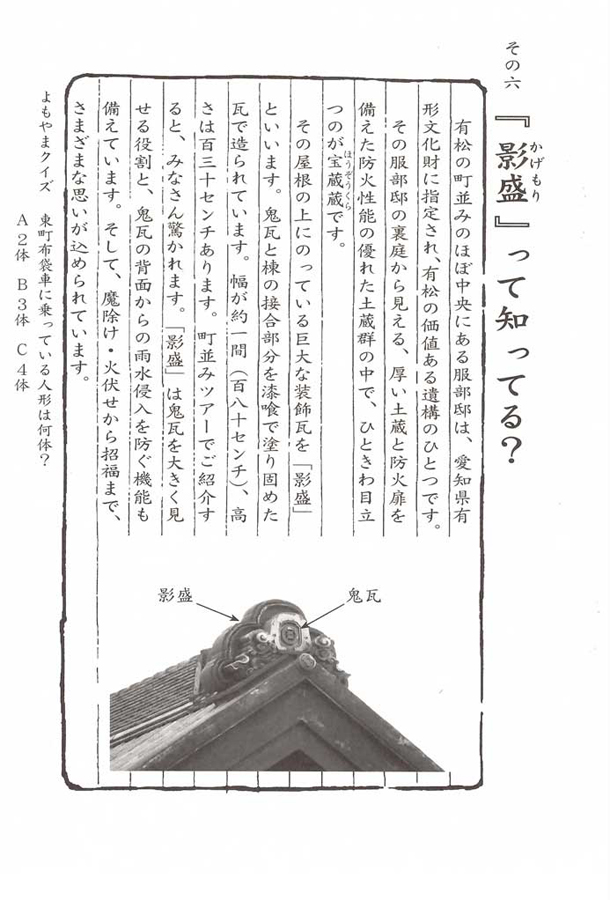 その六
『影盛』って知ってる？
かげもり
有松の町並みのほぼ中央にある服部邸は、愛知県有
形文化財に指定され、有松の価値ある遺構のひとつです。
その服部邸の裏庭から見える、厚い土蔵と防火扉を
備えた防火性能の優れた土蔵群の中で、ひときわ目立
つのが宝蔵蔵です。
ほうぞうくら
その屋根の上にのっている巨大な装飾瓦を「影盛」
といいます。鬼瓦と棟の接合部分を漆喰で塗り固めた
瓦で造られています。幅が約一間（百八十センチ）、高
さは百三十センチあります。町並みツアーでご紹介す
ると、みなさん驚かれます。「影盛」は鬼瓦を大きく見
せる役割と、鬼瓦の背面からの雨水侵入を防ぐ機能も
備えています。そして、魔除け・火伏せから招福まで、
さまざまな思いが込められています。
鬼瓦
影盛
よもやまクイズ　東町布袋車に乗っている人形は何体？
A２体　B３体　C４体